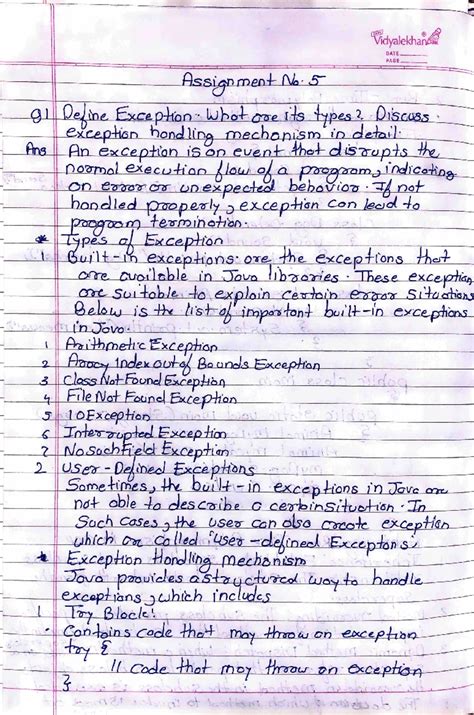 Vidyalekhan
DATE
PAGE
Assignment No. 5
Q1 Define Exception. What are its types? Discuss
exception handling mechanism in detail.
Ans An exception is an event that disrupts the
normal execution flow of a program, indicating
an error or unexpected behavior. If not
handled properly, exception can lead to
program termination.
* Types of Exception
1 Built-in exceptions are the exceptions that
are available in Java libraries. These exception
are suitable to explain certain error situations
Below is the list of important built-in exceptions
in Java.
1 Arithmetic Exception
2 Array Index out of Bounds Exception
3 Class Not Found Exception
4 File Not Found Exception
5 IO Exception
6 Interrupted Exception
7 No such Field Exception
2 User-Defined Exceptions
Sometimes, the built-in exceptions in Java are
not able to describe a certain situation. In
Such cases, the user can also create exception
which are called 'user-defined Exceptions'
* Exception Handling mechanism
Java provides a structured way to handle
exceptions, which includes
1 Try Block:
• Contains code that may throw an exception
try {
// code that may throw an exception
}